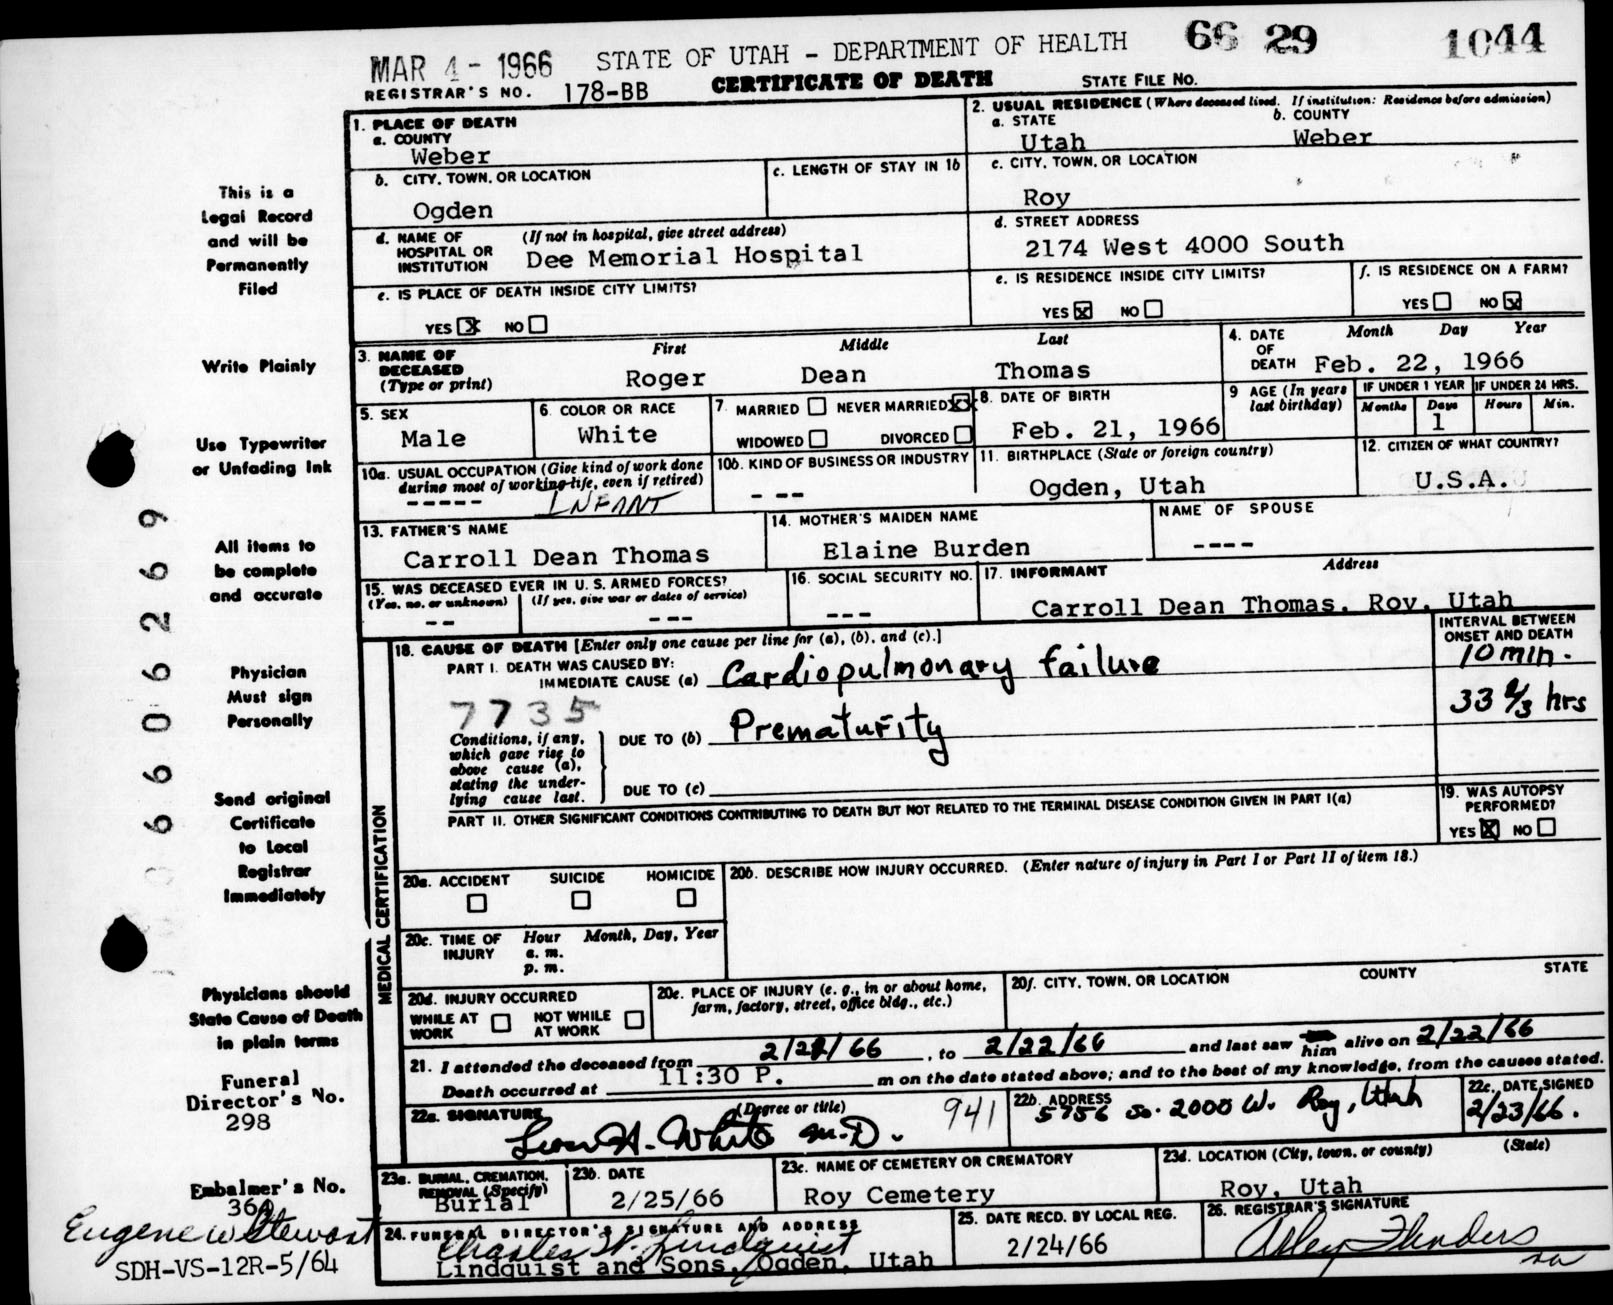 MAR 4 - 1966 STATE OF UTAH - DEPARTMENT OF HEALTH 66 29 1044
REGISTRAR'S NO. 178-BB CERTIFICATE OF DEATH STATE FILE NO.
1. PLACE OF DEATH
a. COUNTY
Weber
2. USUAL RESIDENCE (Where deceased lived. If institution: Residence before admission)
a. STATE b. COUNTY
Utah Weber
b. CITY, TOWN, OR LOCATION
Ogden
c. LENGTH OF STAY IN 1b
c. CITY, TOWN, OR LOCATION
Roy
d. NAME OF HOSPITAL OR INSTITUTION (If not in hospital, give street address)
Dee Memorial Hospital
d. STREET ADDRESS
2174 West 4000 South
e. IS PLACE OF DEATH INSIDE CITY LIMITS?
YES X NO
e. IS RESIDENCE INSIDE CITY LIMITS?
YES X NO
f. IS RESIDENCE ON A FARM?
YES NO X
3. NAME OF DECEASED (Type or print)
First Middle Last
Roger Dean Thomas
4. DATE OF DEATH Month Day Year
Feb. 22, 1966
5. SEX
Male
6. COLOR OR RACE
White
7. MARRIED NEVER MARRIED X
WIDOWED DIVORCED
8. DATE OF BIRTH
Feb. 21, 1966
9 AGE (In years last birthday)
IF UNDER 1 YEAR IF UNDER 24 HRS.
Months Days Hours Min.
1
10a. USUAL OCCUPATION (Give kind of work done during most of working life, even if retired)
----- INFANT
10b. KIND OF BUSINESS OR INDUSTRY
- --
11. BIRTHPLACE (State or foreign country)
Ogden, Utah
12. CITIZEN OF WHAT COUNTRY?
U.S.A.
13. FATHER'S NAME
Carroll Dean Thomas
14. MOTHER'S MAIDEN NAME
Elaine Burden
NAME OF SPOUSE
----
15. WAS DECEASED EVER IN U. S. ARMED FORCES?
(Yes, no, or unknown) (If yes, give war or dates of service)
-- - --
16. SOCIAL SECURITY NO.
---
17. INFORMANT Address
Carroll Dean Thomas, Roy, Utah
18. CAUSE OF DEATH [Enter only one cause per line for (a), (b), and (c).]
INTERVAL BETWEEN ONSET AND DEATH
PART I. DEATH WAS CAUSED BY:
IMMEDIATE CAUSE (a) Cardiopulmonary failure 10 min.
7735
Conditions, if any, which gave rise to above cause (a), stating the underlying cause last.
DUE TO (b) Prematurity 33 2/3 hrs
DUE TO (c)
PART II. OTHER SIGNIFICANT CONDITIONS CONTRIBUTING TO DEATH BUT NOT RELATED TO THE TERMINAL DISEASE CONDITION GIVEN IN PART I(a)
19. WAS AUTOPSY PERFORMED?
YES X NO
MEDICAL CERTIFICATION
20a. ACCIDENT SUICIDE HOMICIDE
20b. DESCRIBE HOW INJURY OCCURRED. (Enter nature of injury in Part I or Part II of item 18.)
20c. TIME OF INJURY Hour Month, Day, Year
a. m.
p. m.
20d. INJURY OCCURRED
WHILE AT WORK NOT WHILE AT WORK
20e. PLACE OF INJURY (e. g., in or about home, farm, factory, street, office bldg., etc.)
20f. CITY, TOWN, OR LOCATION COUNTY STATE
21. I attended the deceased from 2/22/66, to 2/22/66 and last saw him alive on 2/22/66
Death occurred at 11:30 P. m on the date stated above; and to the best of my knowledge, from the causes stated.
22a. SIGNATURE (Degree or title)
White M.D. 941
22b. ADDRESS
5756 So. 2000 W. Roy, Utah
22c. DATE SIGNED
2/23/66.
23a. BURIAL, CREMATION, REMOVAL (Specify)
Burial
23b. DATE
2/25/66
23c. NAME OF CEMETERY OR CREMATORY
Roy Cemetery
23d. LOCATION (City, town, or county) (State)
Roy, Utah
24. FUNERAL DIRECTOR'S SIGNATURE AND ADDRESS
Charles W. Lindquist
Lindquist and Sons, Ogden, Utah
25. DATE RECD. BY LOCAL REG.
2/24/66
26. REGISTRAR'S SIGNATURE
Flinders
This is a
Legal Record
and will be
Permanently
Filed
Write Plainly
Use Typewriter
or Unfading Ink
All items to
be complete
and accurate
Physician
Must sign
Personally
Send original
Certificate
to Local
Registrar
Immediately
Physicians should
State Cause of Death
in plain terms
Funeral
Director's No.
298
Embalmer's No.
Eugene W Stewart
SDH-VS-12R-5/64
06606269